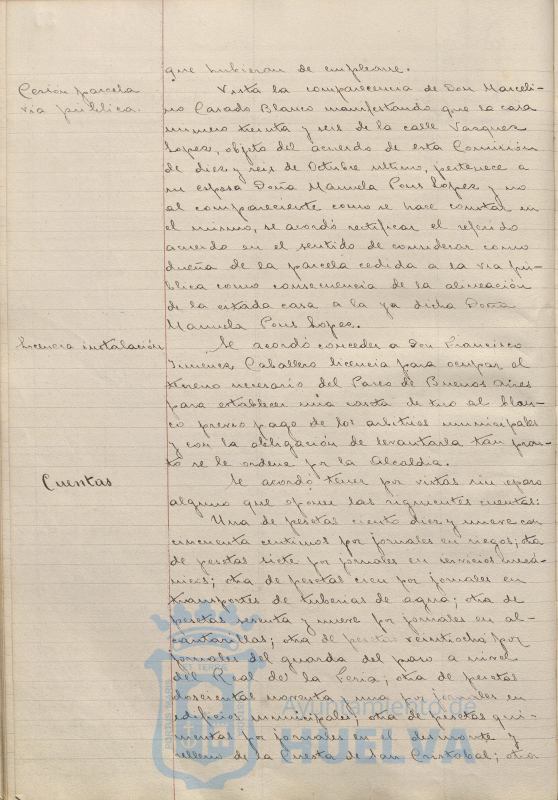 que hubieran de emplearse.
Cesión parcela
vía pública.
Vista la comparecencia de Don Marceli-
no Casado Blanco manifestando que la casa
número treinta y seis de la calle Vazquez
Lopez, objeto del acuerdo de esta Comisión
de diez y seis de Octubre último, pertenece a
su esposa Doña Manuela Pons Lopez y no
al compareciente como se hace constar en
el mismo, se acordó rectificar el referido
acuerdo en el sentido de considerar como
dueña de la parcela cedida a la via pú-
blica como consecuencia de la alineación
de la citada casa a la ya dicha Doña
Manuela Pons Lopez.
Licencia instalación
Se acordó conceder a Don Francisco
Jimenez Caballero licencia para ocupar el
terreno necesario del Paseo de Buenos Aires
para establecer una caseta de tiro al blan-
co previo pago de los arbitrios municipales
y con la obligación de levantarla tan pron-
to se le ordene por la Alcaldía.
Cuentas
Se acordó tener por vistas sin reparo
alguno que oponer las siguientes cuentas:
Una de pesetas ciento diez y nueve con
cincuenta centimos por jornales en riegos; otra
de pesetas siete por jornales en servicios mecá-
nicos; otra de pesetas cien por jornales en
transportes de tuberias de agua; otra de
pesetas sesenta y nueve por jornales en al-
cantarillas; otra de pesetas veintiocho por
jornales del guarda del paso a nivel
del Real de la Feria; otra de pesetas
doscientas noventa y una por jornales en
edificios municipales; otra de pesetas qui-
nientas por jornales en el desmonte y
relleno de la Cuesta de San Cristobal; otra
Ayuntamiento de
HUELVA